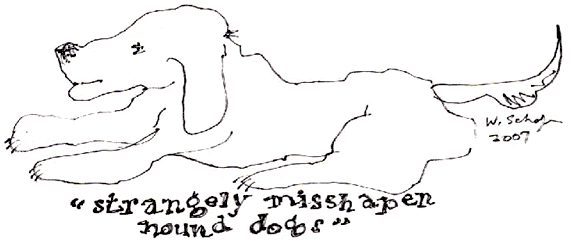 W.
2007
"strangely misshapen
hound dogs"